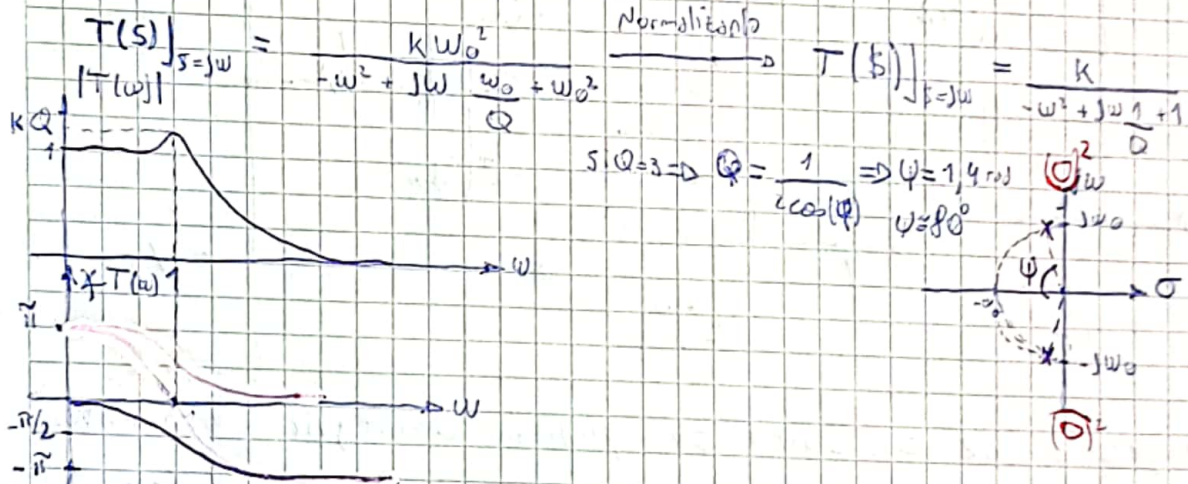 T(S)]_{S=jω} = kω₀² / (-ω² + jω ω₀/Q + ω₀²) Normalizando → T(S)]_{S=jω} = k / (-ω² + jω 1/Q + 1)
|T(ω)|
kQ
1
Si Q=3 ⇒ Q = 1 / 2cos(ψ) ⇒ ψ = 1,4 rad
ψ ≈ 80°
ω
∡T(ω) 1
π
ω
-π/2
-π
2
jω
jω₀
ψ
σ
-jω₀
2